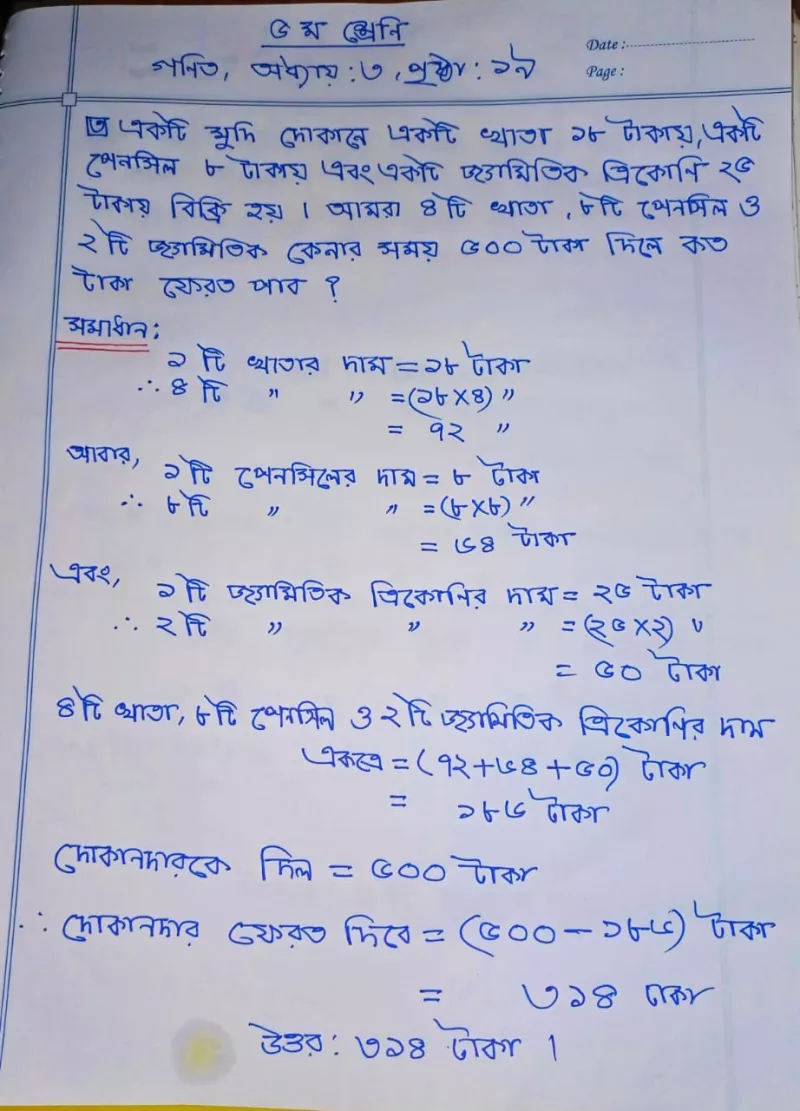 ৫ ম শ্রেনি
গনিত, অধ্যায় : ৩, পৃষ্ঠা : ১৯
Date :
Page :
একটি মুদি দোকানে একটি খাতা ১৮ টাকায়, একটি
পেনসিল ৮ টাকায় এবং একটি জ্যামিতিক ত্রিকোণি ২৫
টাকায় বিক্রি হয় । আমরা ৪ টি খাতা , ৮ টি পেনসিল ও
২ টি জ্যামিতিক কেনার সময় ৫০০ টাকা দিলে কত
টাকা ফেরত পাব ?
সমাধান :
১ টি খাতার দাম = ১৮ টাকা
∴ ৪ টি " " = (১৮ X ৪) "
= ৭২ "
আবার,
১ টি পেনসিলের দাম = ৮ টাকা
∴ ৮ টি " " = (৮ X ৮) "
= ৬৪ টাকা
এবং,
১ টি জ্যামিতিক ত্রিকোণির দাম = ২৫ টাকা
∴ ২ টি " " " = (২৫ X ২) "
= ৫০ টাকা
৪ টি খাতা, ৮ টি পেনসিল ও ২ টি জ্যামিতিক ত্রিকোণির দাম
একত্রে = (৭২ + ৬৪ + ৫০) টাকা
= ১৮৬ টাকা
দোকানদারকে দিল = ৫০০ টাকা
∴ দোকানদার ফেরত দিবে = (৫০০ - ১৮৬) টাকা
= ৩১৪ টাকা
উত্তর : ৩১৪ টাকা ।